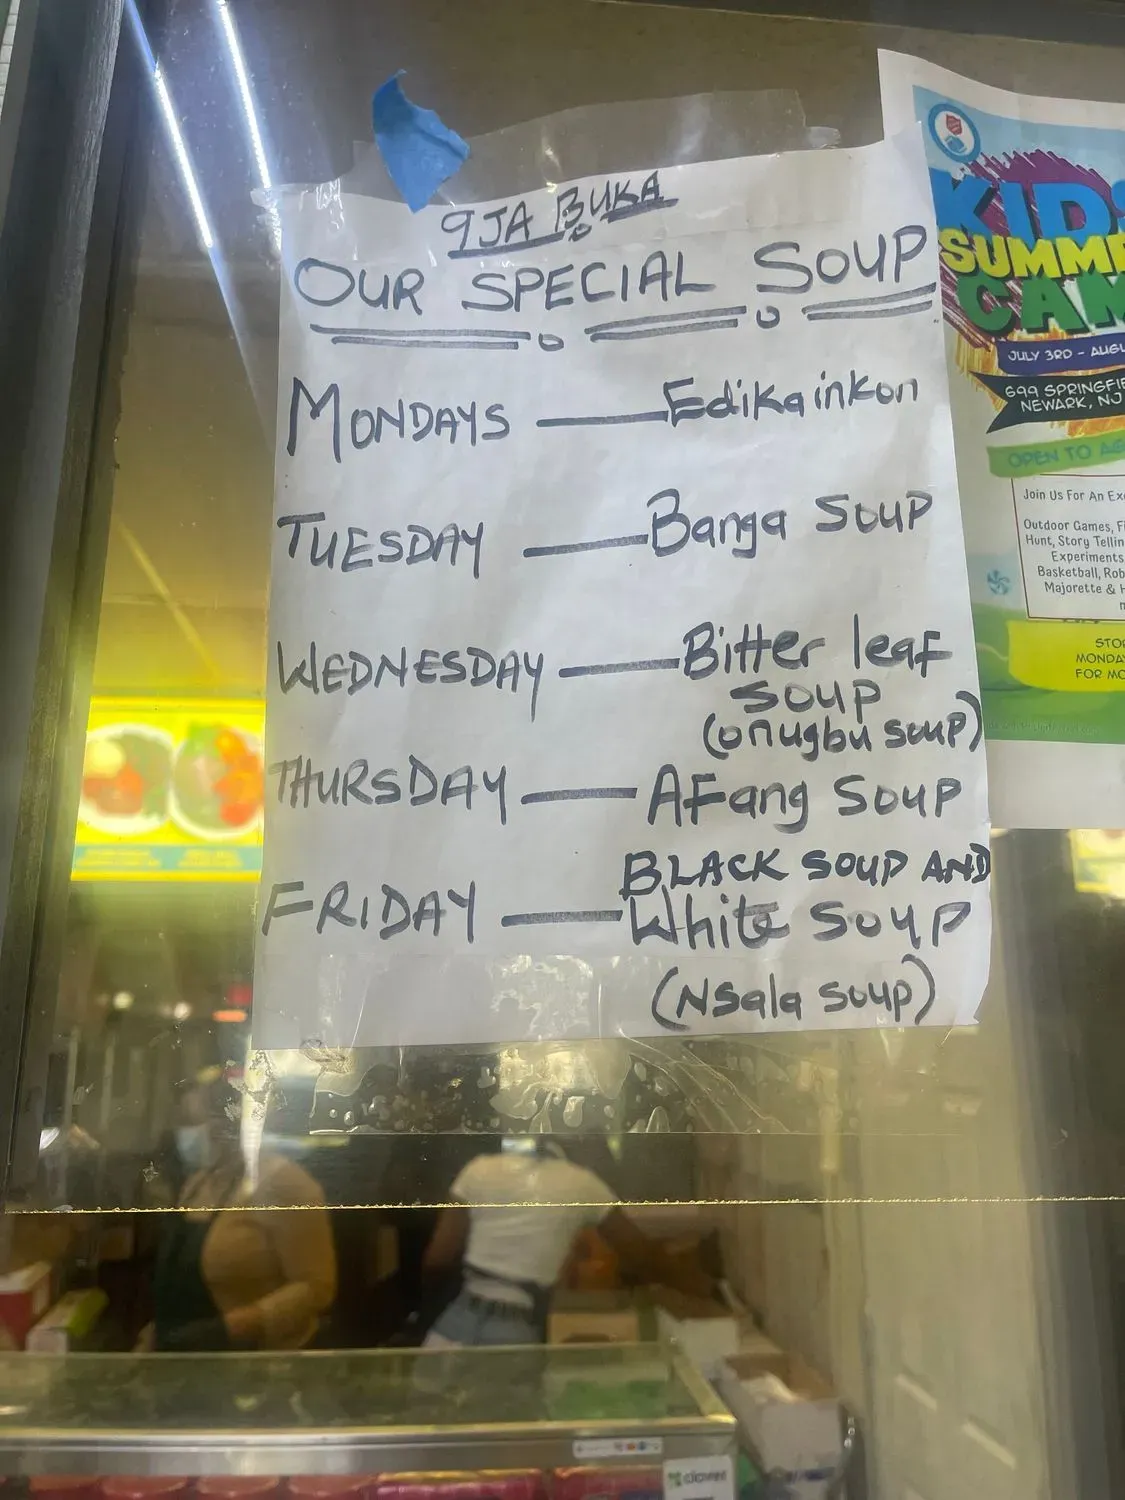 9JA BUKA
OUR SPECIAL SOUP
MONDAYS — Edikainkon
TUESDAY — Banga Soup
WEDNESDAY — Bitter leaf
soup
(onugbu soup)
THURSDAY — AFang Soup
BLACK SOUP AND
FRIDAY — White Soup
(Nsala soup)
KIDS
SUMM
CAM
JULY 3RD - AUGU
699 SPRINGFIE
NEWARK, NJ
OPEN TO AG
Join Us For An Ex
Outdoor Games, Fi
Hunt, Story Tellin
Experiments
Basketball, Rob
Majorette & H
STO
MONDA
FOR MO
clover